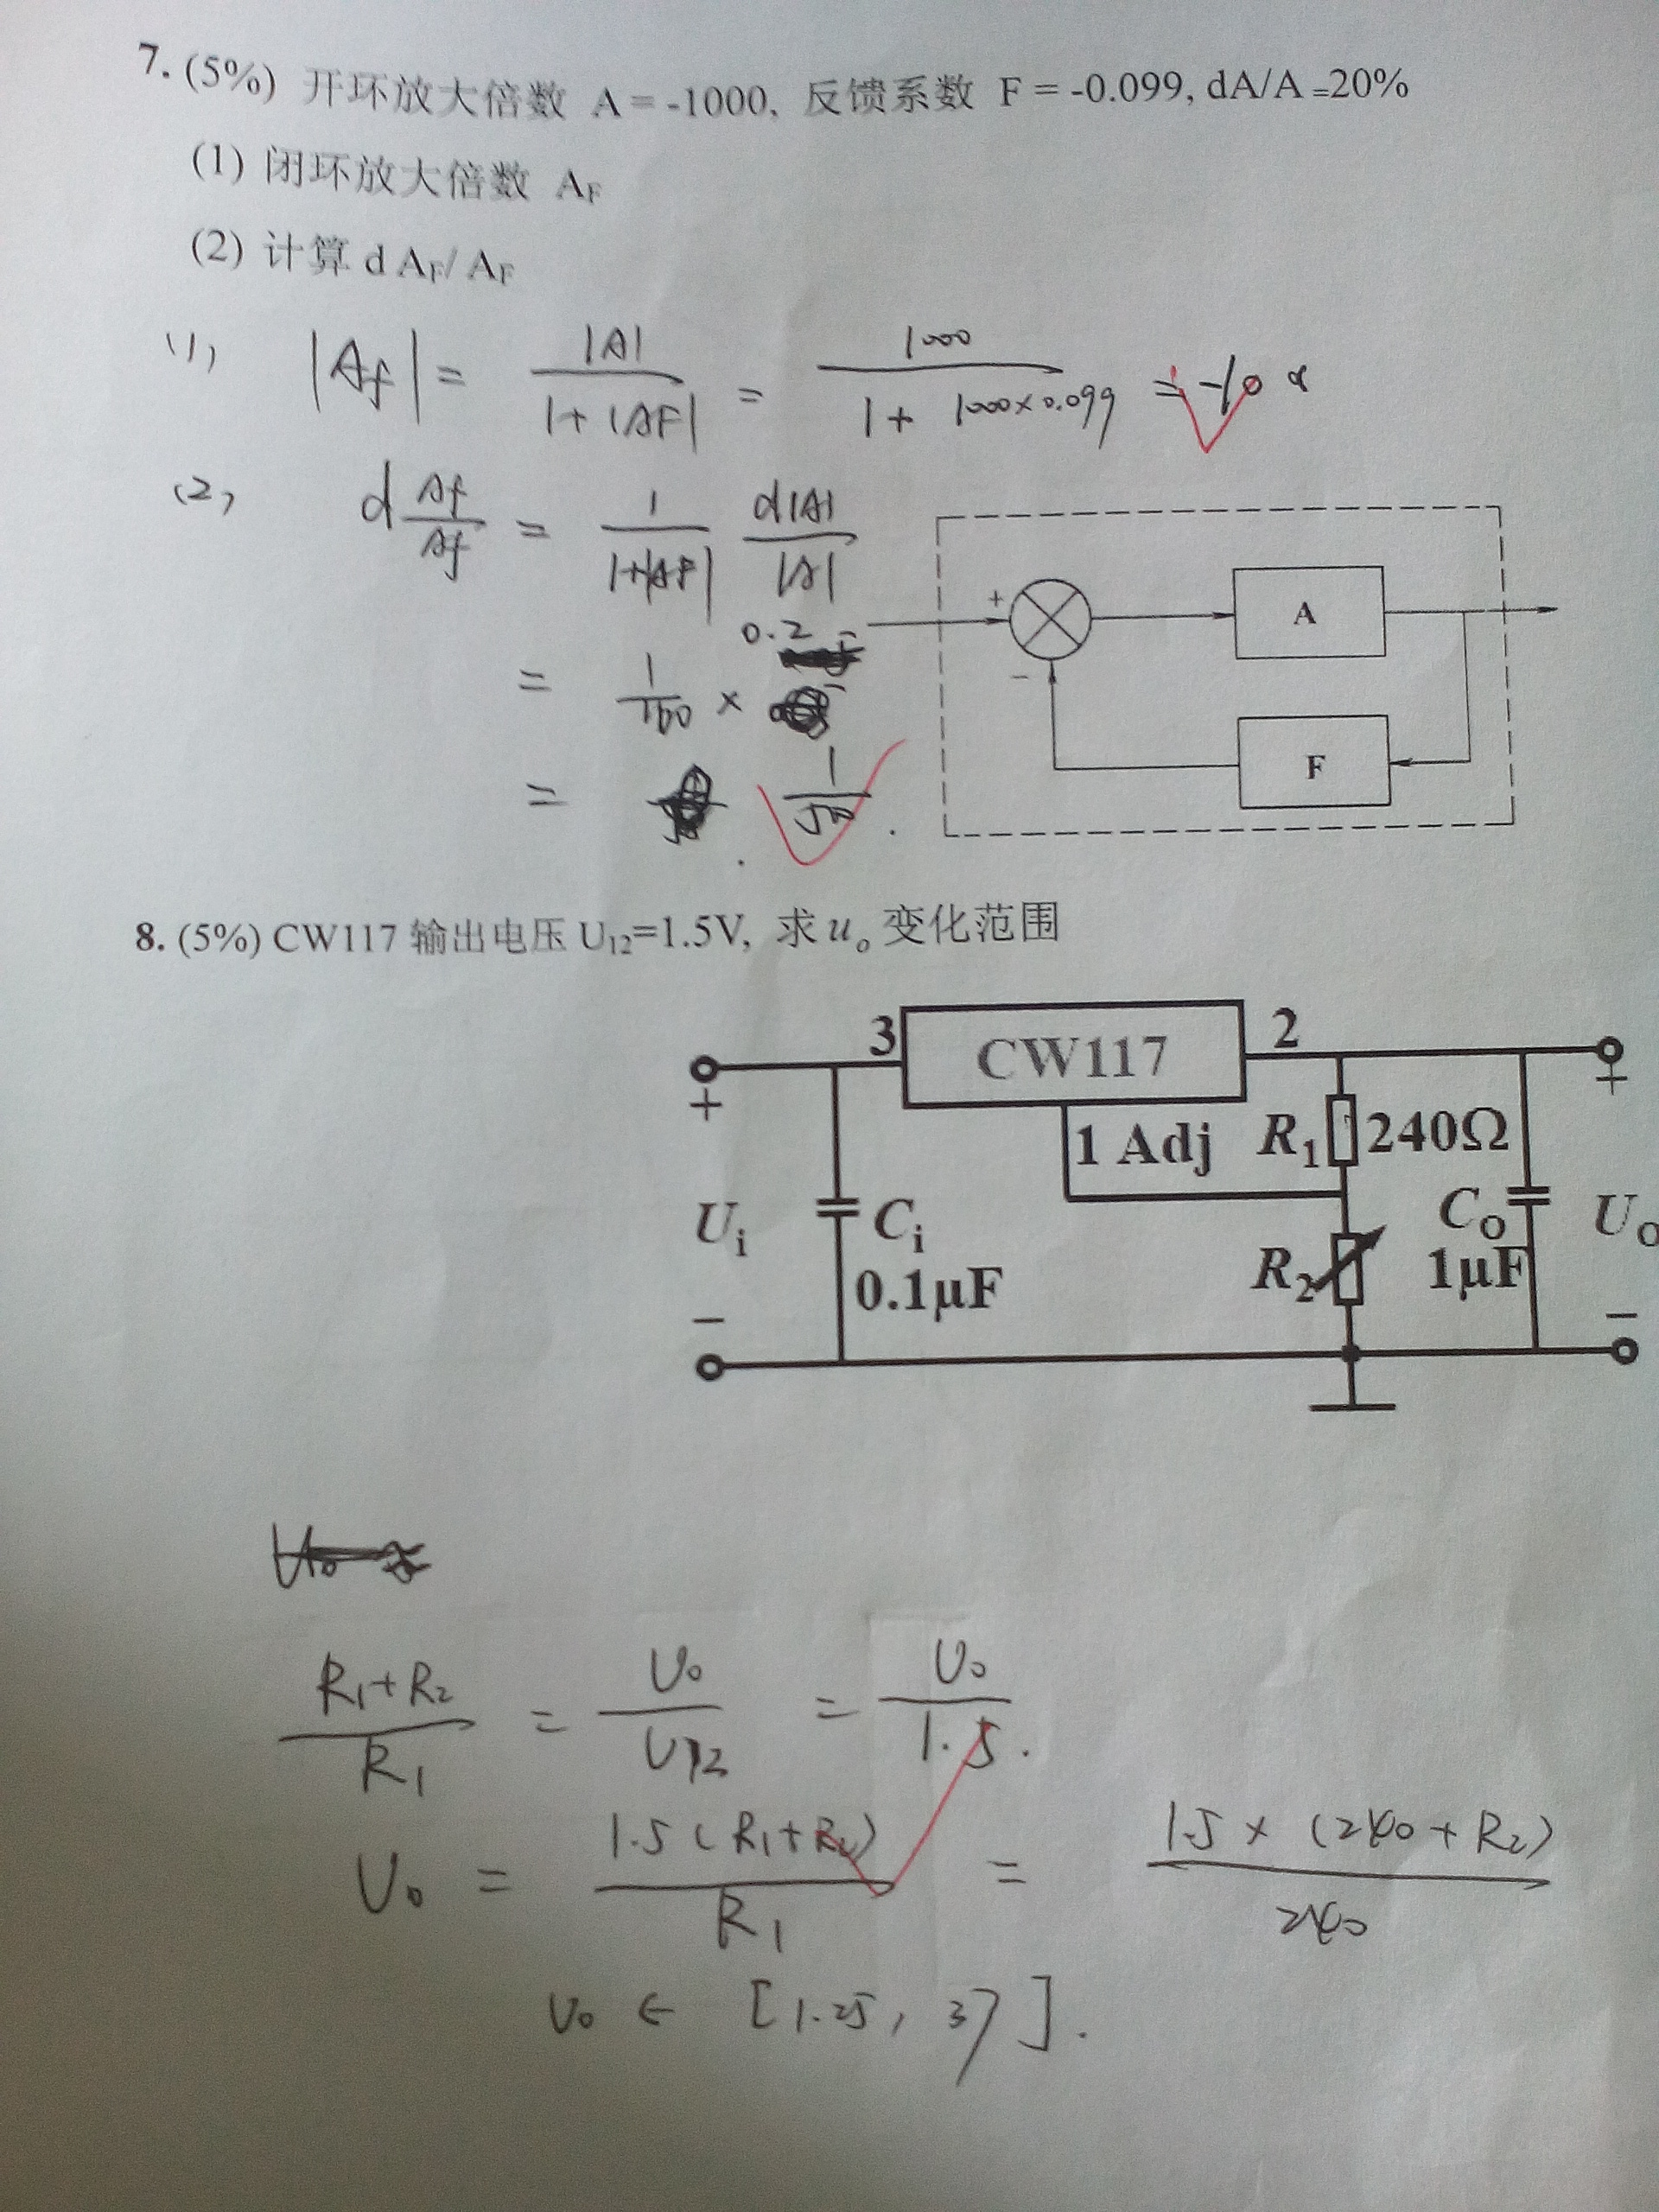 7. (5%) 开环放大倍数 A = -1000, 反馈系数 F = -0.099, dA/A =20%
(1) 闭环放大倍数 A_F
(2) 计算 d A_F/ A_F
(1) |Af| = |A| / 1+|AF| = 1000 / 1+ 1000×0.099 = -10
(2) d Af/Af = 1/1+|AF| d|A|/|A|
= 1/100 × 0.2
= 1/500 .
+
A
−
F
8. (5%) CW117 输出电压 U12=1.5V, 求 u_o 变化范围
3 CW117 2
+ +
1 Adj R1 240Ω
Ui Ci R2 Co Uo
0.1μF 1μF
− −
R1+R2 / R1 = Uo / U12 = Uo / 1.5 .
Uo = 1.5 ( R1+R2 ) / R1 = 1.5 × (240 + R2) / 240
Uo ∈ [1.25, 37] .